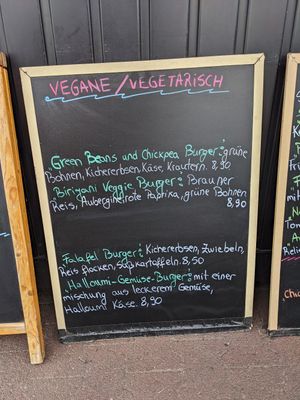 VEGANE/VEGETARISCH
Green Beans und Chickpea Burger: grüne
Bohnen, Kichererbsen, Käse, Kräutern. 8,90
Biriyani Veggie Burger: Brauner
Reis, Aubergine, rote Paprika, grüne Bohnen
8,90
Falafel Burger: Kichererbsen, Zwiebeln,
Reis flocken, süßkartoffeln. 8,50
Halloumi-Gemüse-Burger: mit einer
mischung aus leckerem Gemüse,
Halloumi Käse. 8,90